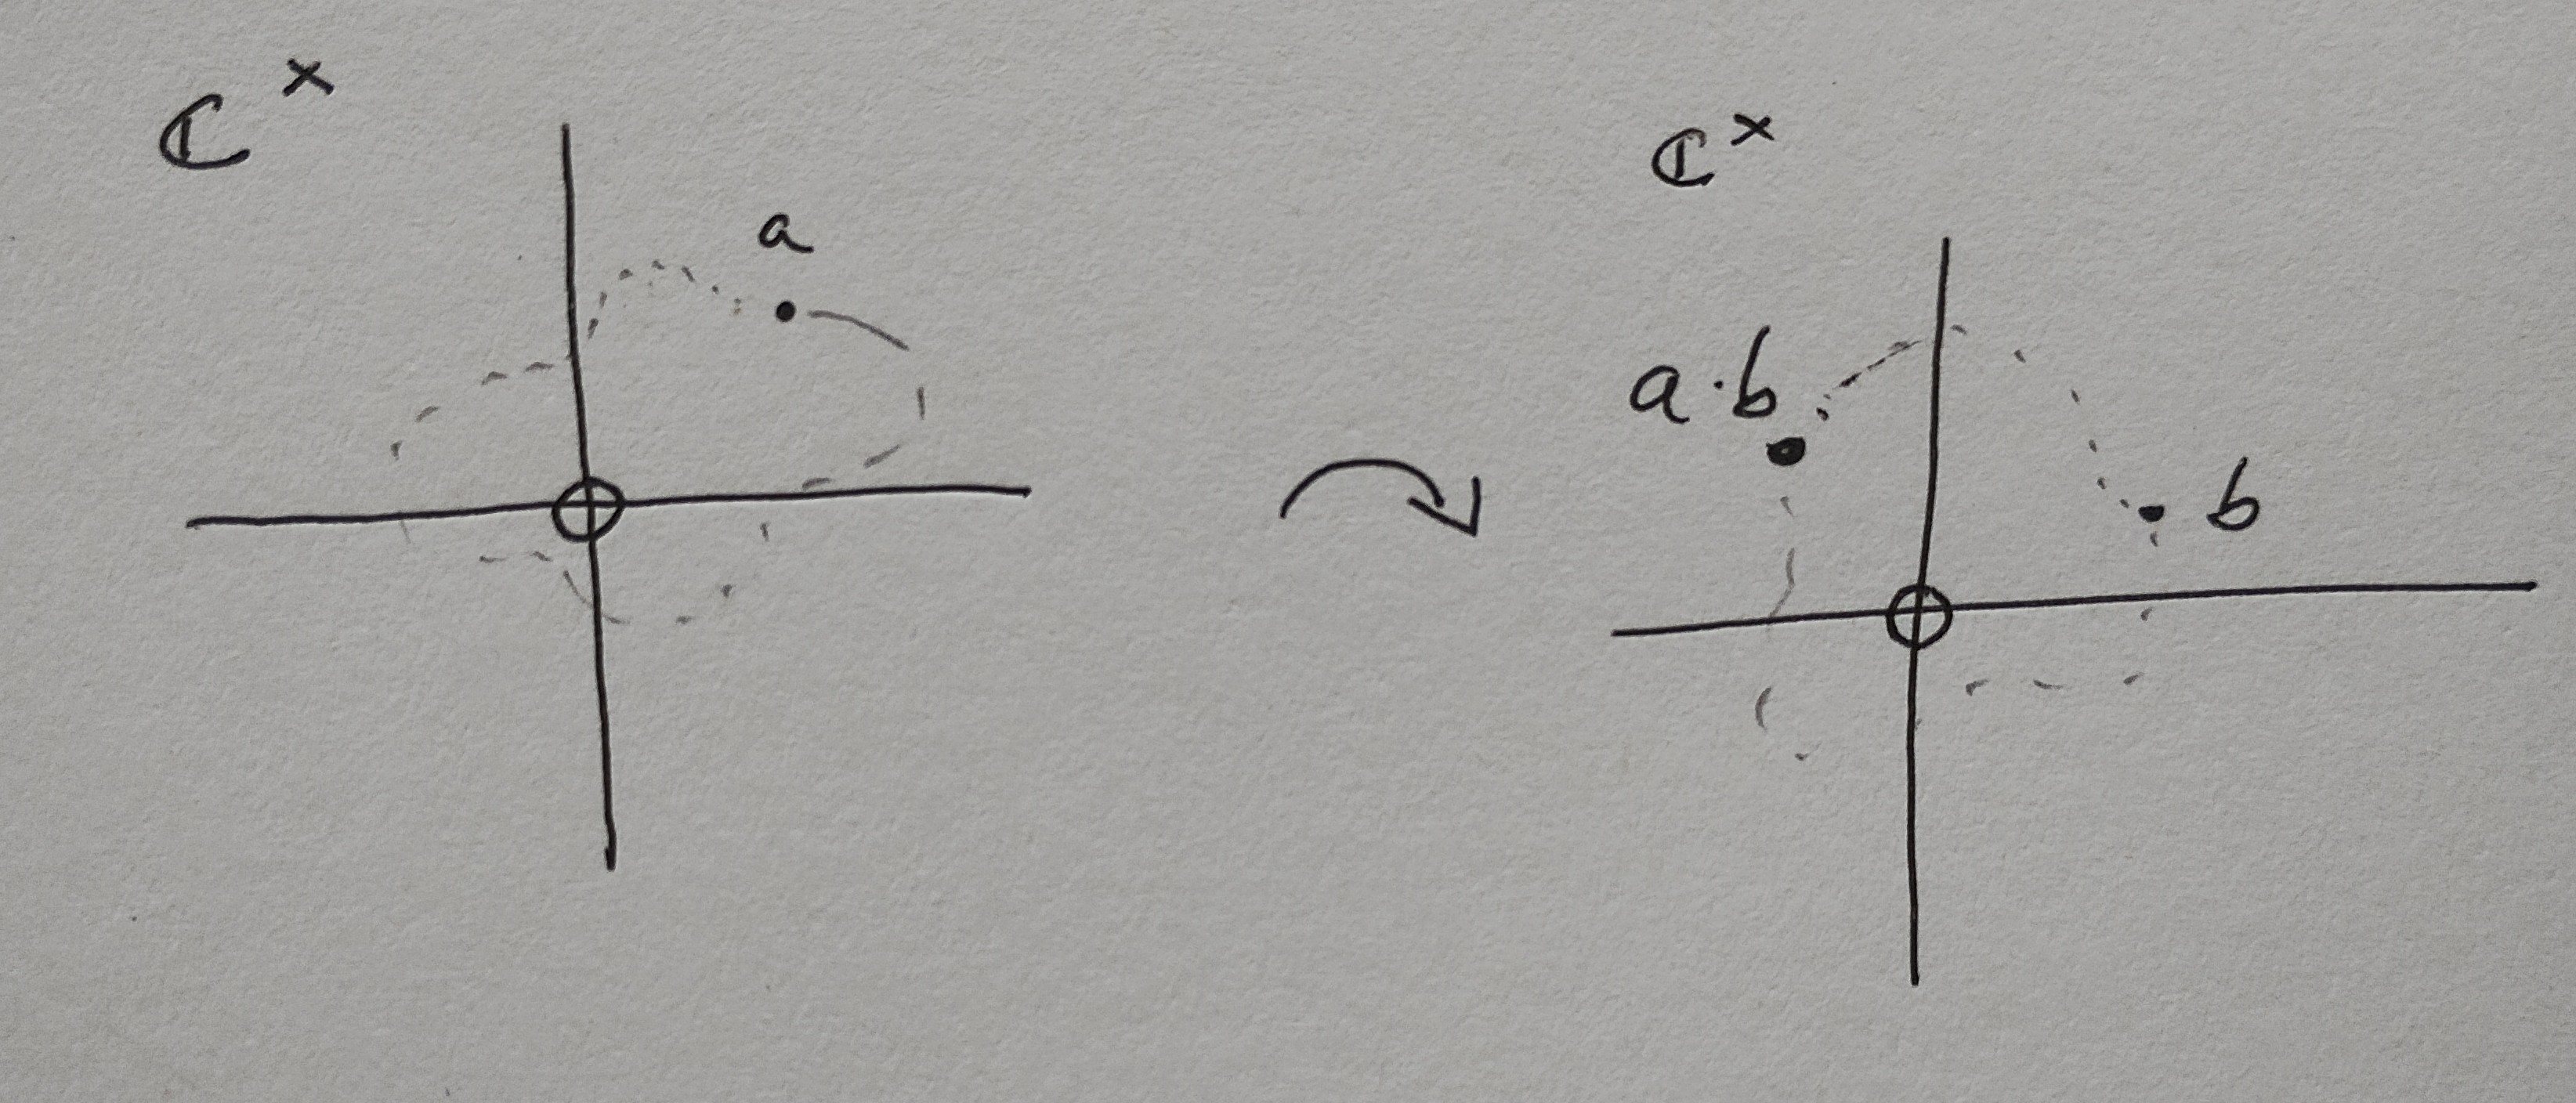 ℂ^×
a
ℂ^×
a·b
b